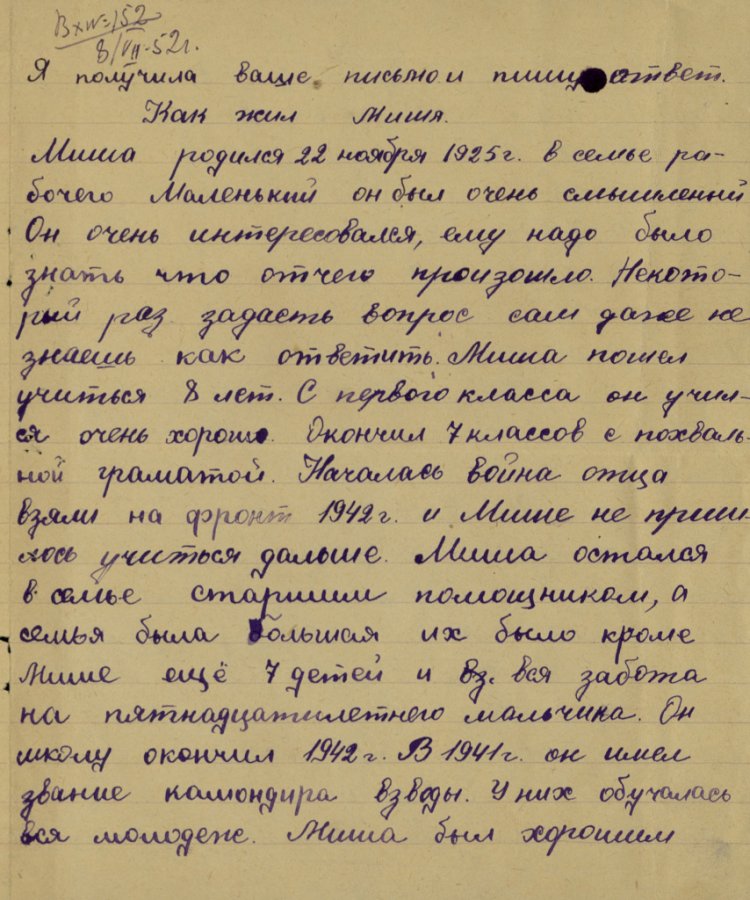 Вх№=152
8/VII-52г.
Я получила ваше письмо и пишу ответ.
Как жил Миша.
Миша родился 22 ноября 1925г. в семье ра-
бочего Маленький он был очень смышленый
Он очень интересовался, ему надо было
знать что отчего произошло. Некото-
рый раз задасть вопрос сам даже не
знаешь как ответить. Миша пошел
учиться 8 лет. С первого класса он учил-
ся очень хорошо. Окончил 7 классов с похваль-
ной граматой. Началась война отца
взяли на фронт 1942г. и Мише не приш
лось учиться дальше. Миша остался
в семье старшим помощником, а
семья была большая их было кроме
Мише ещё 7 детей и вз. вся забота
на пятнадцатилетнего мальчика. Он
школу окончил 1942г. В 1941г. он имел
звание камондира взводы. У них обучалась
вся молодеж. Миша был хорошим